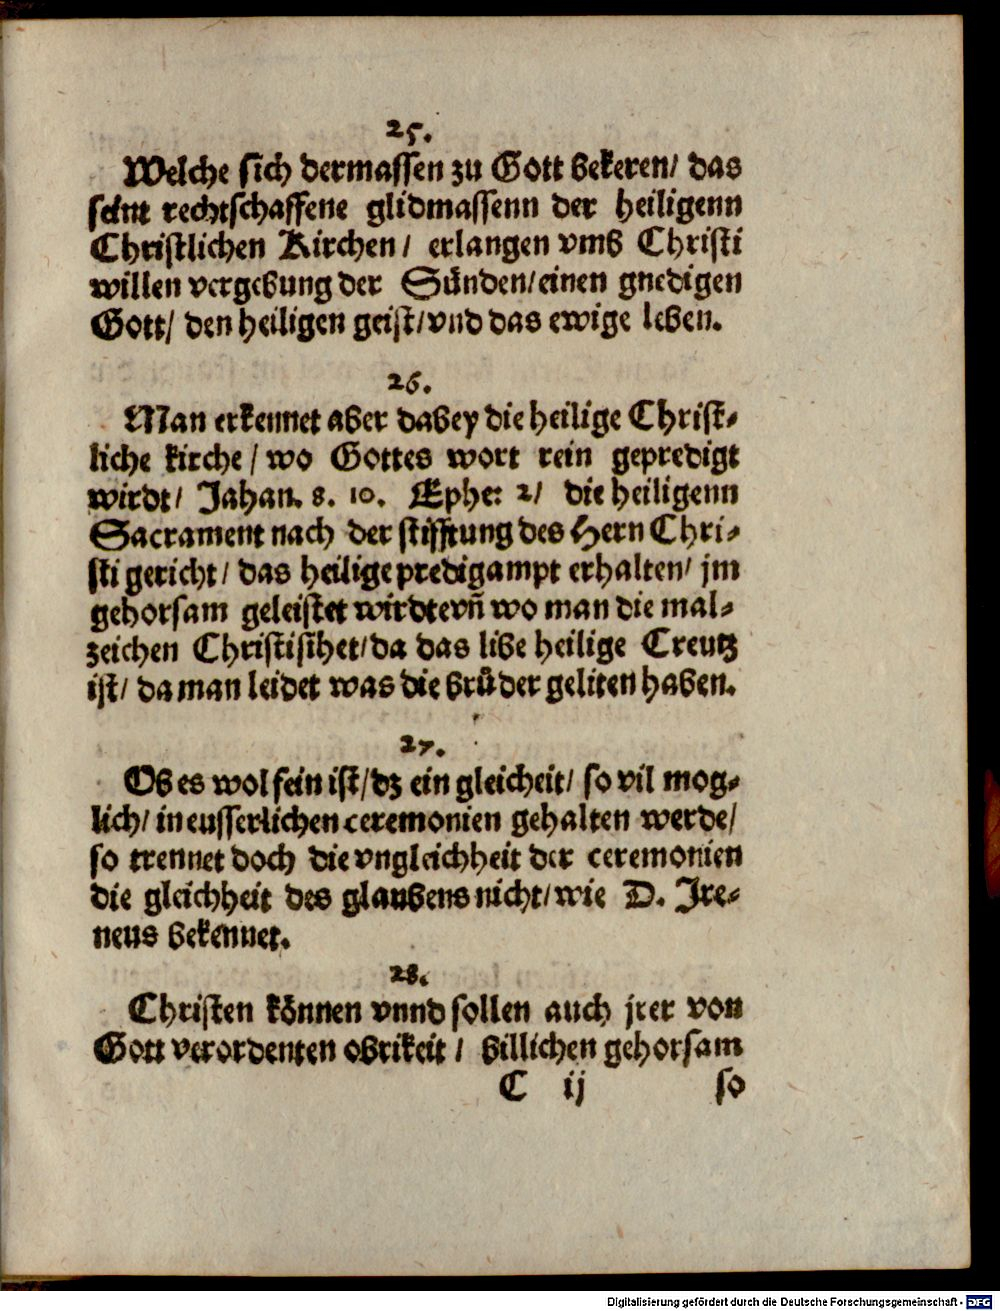 25.
Welche sich dermassen zu Gott bekeren/ das
seint rechtschaffene glidmassenn der heiligenn
Christlichen Kirchen/ erlangen vmb Christi
willen vergebung der Sünden/ einen gnedigen
Gott/ den heiligen geist/ vnd das ewige leben.
26.
Man erkennet aber dabey die heilige Christ-
liche kirche/ wo Gottes wort rein gepredigt
wirdt/ Jahan. 8. 10. Ephe: 2/ die heiligenn
Sacrament nach der stifftung des Hern Chri-
sti gericht/ das heilige predigampt erhalten/ jm
gehorsam geleistet wirdt vn̄ wo man die mal-
zeichen Christi sihet/ da das libe heilige Creutz
ist/ da man leidet was die brůder geliten haben.
27.
Ob es wol fein ist/ dz ein gleicheit/ so vil mog-
lich/ in eusserlichen ceremonien gehalten werde/
so trennet doch die vngleichheit der ceremonien
die gleichheit des glaubens nicht/ wie D. Ire-
neus bekennet.
28.
Christen können vnnd sollen auch jrer von
Gott verordenten obrikeit/ billichen gehorsam
C ij so
Digitalisierung gefördert durch die Deutsche Forschungsgemeinschaft - DFG